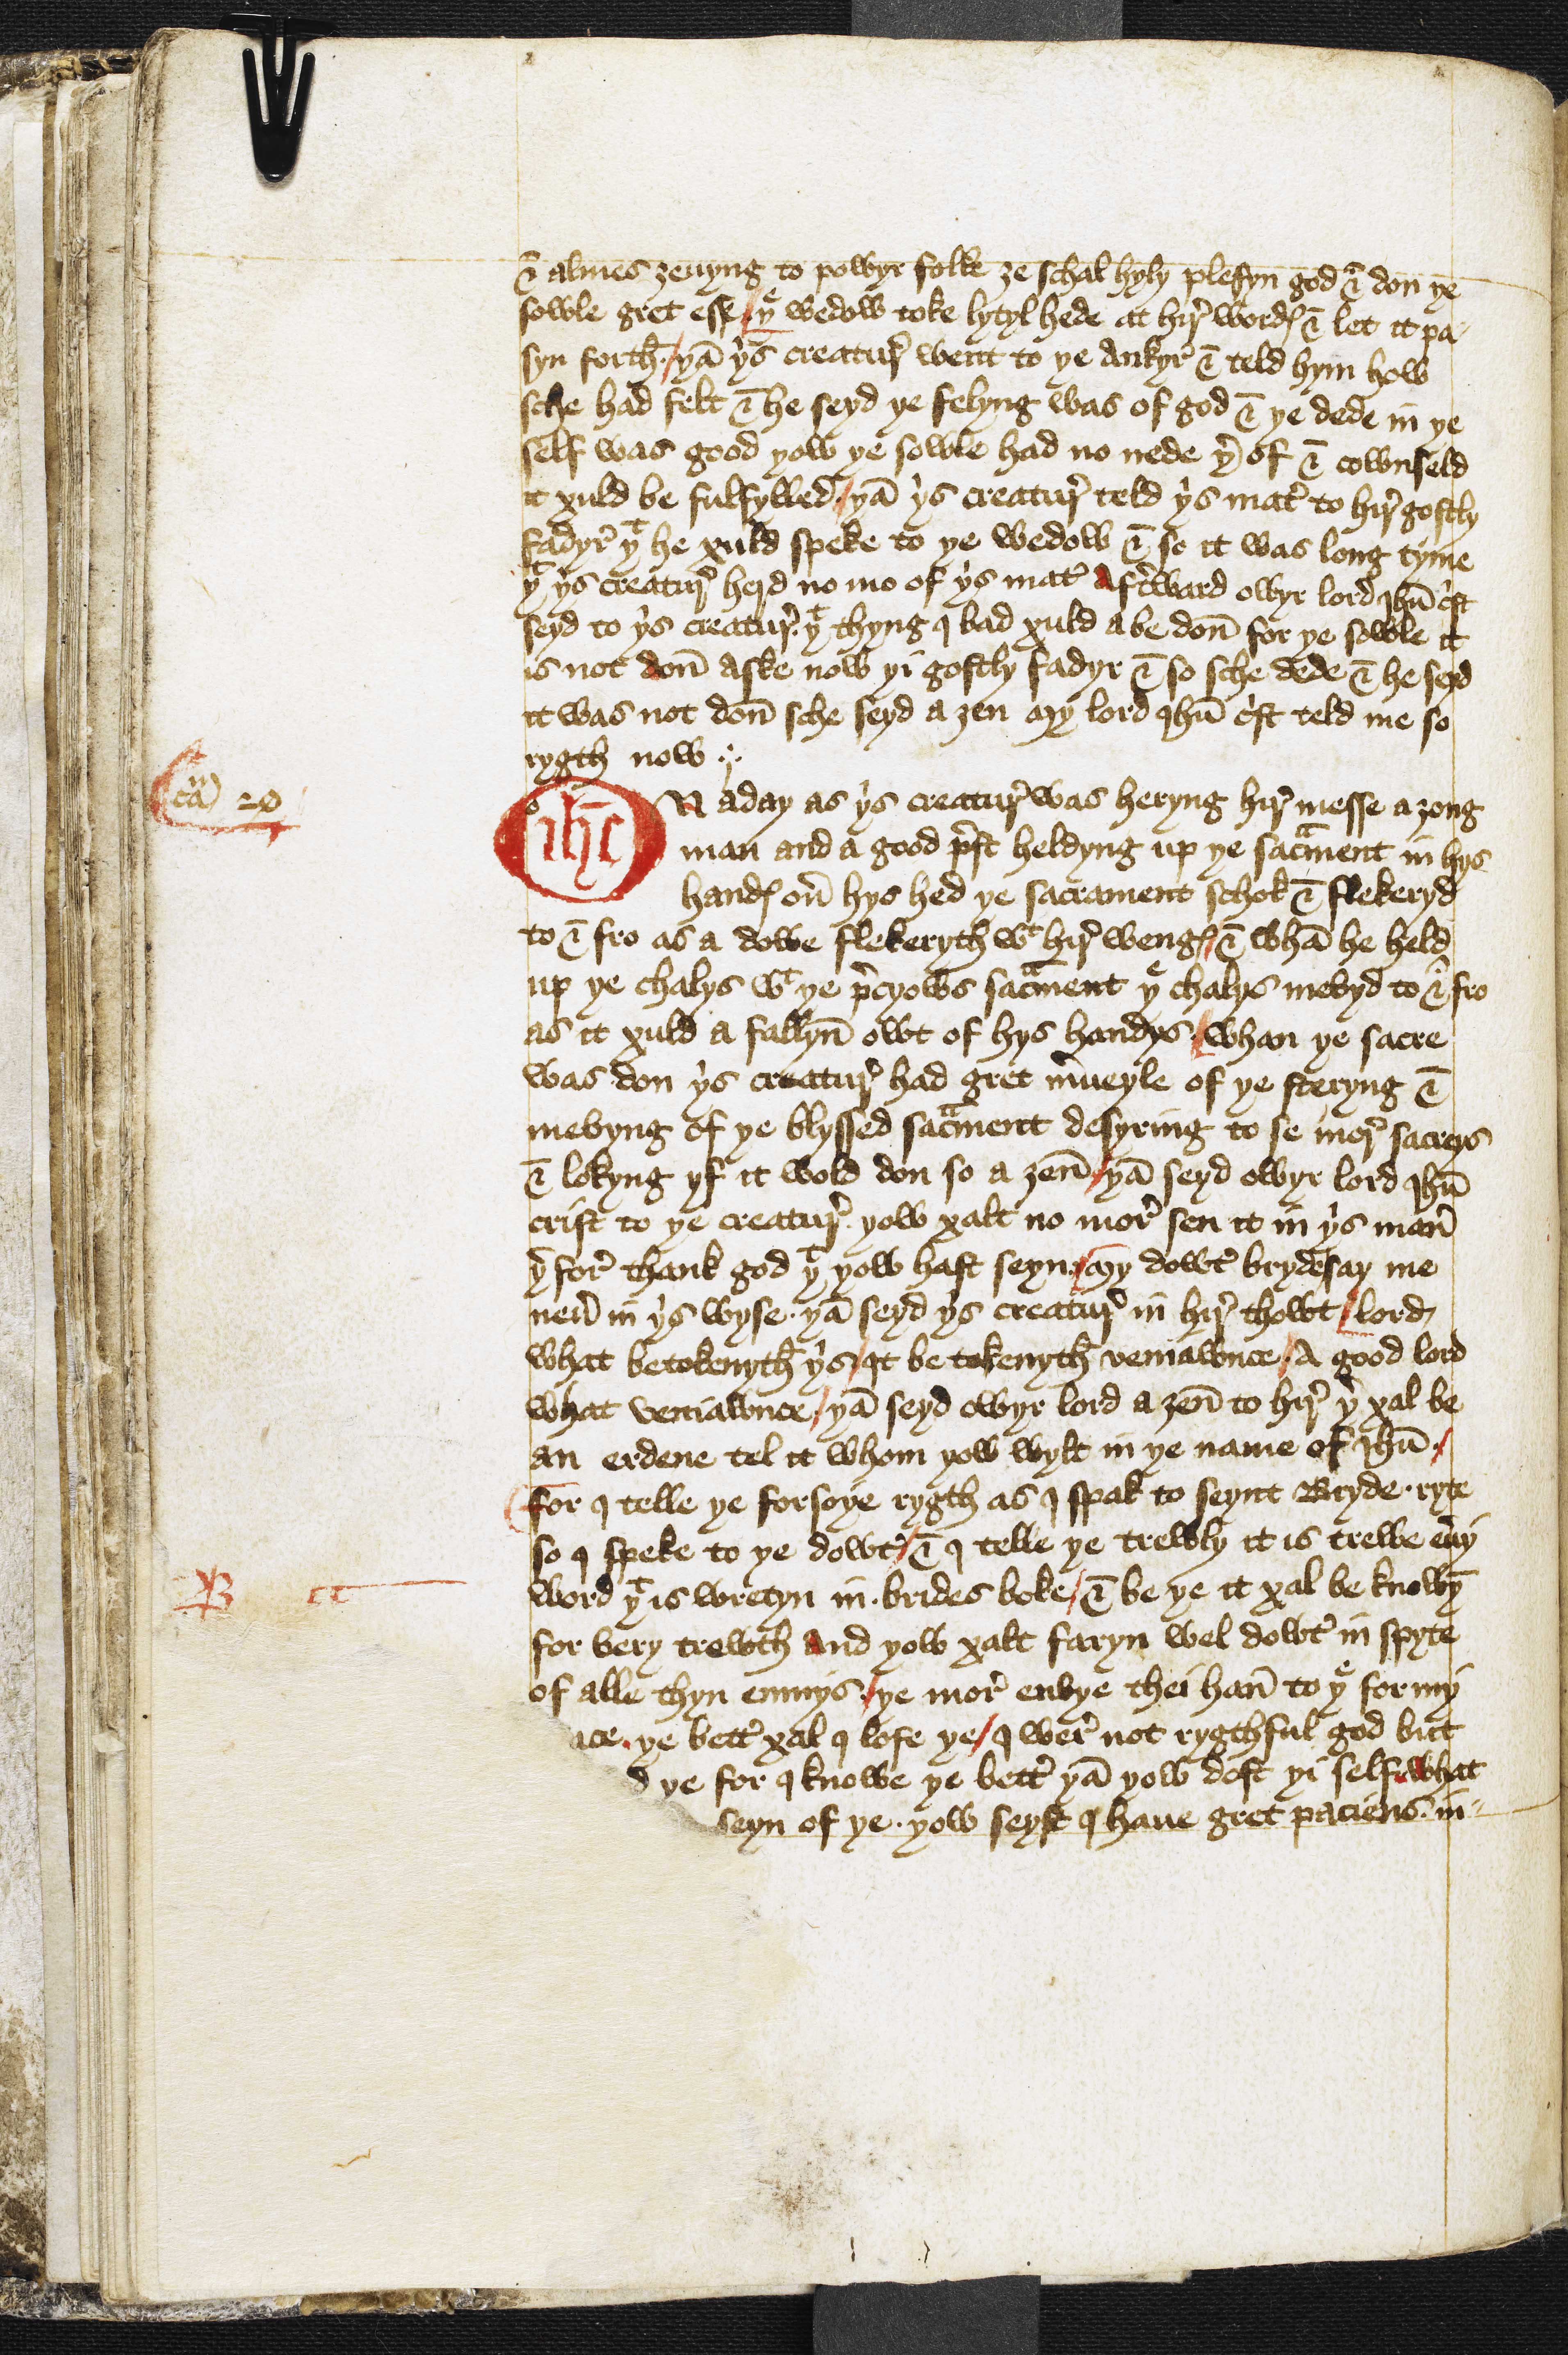 & almes ȝeuyng to powyr folke ȝe schal hyly plesyn god & don ye
sowle gret esse / yͤ wedow toke lytyl hede at hir̛ wordꝭ & let it pa-
syn forth̄ · / yā yͥs creatur̛ went to ye Ankyr̛ & teld hym how
sche had felt & he seyd ye felyng was of god & ye dede in ye
self was good yow ye sowle had no nede yͬ of & cownseld
it xuld be fulfylled · / yā yͥs creatur̛ teld yͥs mat̛ to hir̛ gostly
fadyr̛ yͭ he xuld speke to ye wedow & so it was long tyme
yͭ yͥs creatur̛ herd no mo of yͥs mat̛ Aft̛ward owyr lord ihū cͥst
seyd to yͥs creatur̛ · yͭ thyng I bad xuld a be don̄ for ye sowle it
is not don̄ aske now yi gostly fadyr & so sche dede & he seyd
it was not don̄ sche seyd a ȝen my lord ihū cͥst teld me so
rygth now ·
Ca 20
ihc
o N aday as yͥs creatur̛ was heryng hir̛ messe a ȝong
man and a good p̛st heldyng up ye sacᵃment in hys
handꝭ oư hys hed ye sacrament schok & flekeryd
to & fro as a dowe flekeryth̄ wͭ hir̛ wengꝭ / & whā he held
up ye chalys wͭ ye p̛cyows sacᵃment yͤ chalys mevyd to & fro
as it xuld a fallyn̄ owt of hys handys · / whan ye sacre
was don yͥs creatur̛ had gret m̛ueyle of ye steryng &
mevyng of ye blyssed sacᵃment desyring to se mor̛ sacreys
& lokyng yf it wold don so a ȝen̄ / yā seyd owyr lord ihū
crist to ye creatur̛ · yow xalt no mor̛ sen it in yͥs man̛
yͬ for̛ thank god yͭ yow hast seyn · / My dowt̛ bryde say me
neư in yͥs wyse · yā seyd yͥs creatur̛ in hir̛ thowt / lord
what betokenyth̄ yͥs / It be tokenyth̄ veniawnce / A good lord
what veniawnce / yā seyd owyr lord a ȝen̄ to hir̛ yͬ xal be
an erdene tel it whom yow wylt in ye name of ihū · /
for I telle ye forsoye rygth as I spak to seynt Bryde · ryte
so I speke to ye dowt̛ / & I telle ye trewly it is trewe eưy
word yͭ is wretyn in · brides boke / & be ye it xal be knowȳ
for very trewth And yow xalt faryn wel dowt̛ in spyte
of alle thyn enmys · / ye mor̛ envye thei han̄ to yͤ for my
ace · ye bett̛ xal I lofe ye / I wer̛ not rygthful god but
d ye for I knowe ye bett̛ yā yow dost yi self what
seyn of ye · yow seyst I haue gret paciens · in-